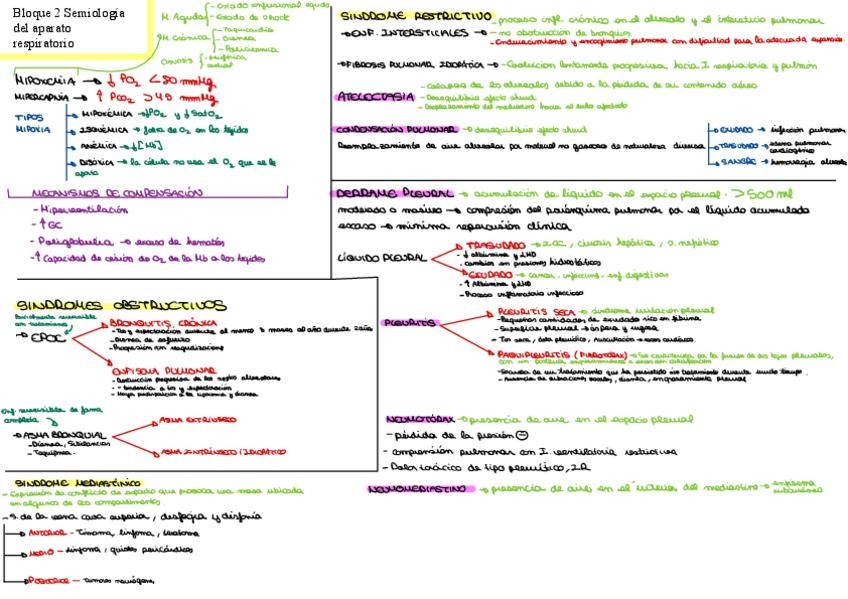 Bloque 2 Semiología
del aparato
respiratorio
H. Aguda - Estado confusional agudo
- Estado de shock
H. Crónica - Taquicardia
- Disnea
- Policitemia
Cianosis - Periférica
- Central
HIPOXEMIA → ↓ PO2 < 80 mmHg
HIPERCAPNIA → ↑ PCO2 > 45 mmHg
TIPOS
HIPOXIA
HIPOXÉMICA → ↓PO2 y ↓SatO2
ISQUÉMICA → falta de O2 en los tejidos
ANÉMICA → ↓[Hb]
→ la célula no usa el O2 que se le
aporta
MECANISMOS DE COMPENSACIÓN
- Hiperventilación
- ↑GC
- Poliglobulia → exceso de hematíes
- ↑ Capacidad de cesión de O2 de la Hb a los tejidos
SINDROMES OBSTRUCTIVOS
Parcialmente reversible
con tratamiento
→ EPOC
BRONQUITIS CRÓNICA
- Tos y expectoración durante al menos 3 meses al año durante 2 años
- Disnea de esfuerzo
- Progresión con reagudizaciones
ENFISEMA PULMONAR
Enf. reversible de forma
completa
→ ASMA BRONQUIAL
- Disnea, Sibilancias
- Taquipnea
→ ASMA EXTRÍNSECO
→ ASMA INTRÍNSECO/IDIOPÁTICO
SINDROME MEDIASTÍNICO
- Expresión de conflicto de espacio que provoca una masa ubicada
en algunos de los compartimentos.
- S. de la vena cava superior, disfagia y disfonía
→ ANTERIOR - Timoma, linfoma, teratoma
→ MEDIO - Linfoma, quistes pericárdicos
→ POSTERIOR - Tumores neurógenos
SINDROME RESTRICTIVO → proceso infl. crónico en el alveolo y el intersticio pulmonar
→ ENF. INTERSTICIALES → no obstrucción de bronquios
→ Endurecimiento y encogimiento pulmonar con dificultad para la adecuada expansión
→ FIBROSIS PULMONAR IDIOPÁTICA → Evolución lentamente progresiva hacia I. respiratoria y pulmón
ATELECTASIA - Colapso de los alveolos debido a la pérdida de su contenido aéreo
- Desequilibrio efecto shunt
- Desplazamiento del mediastino hacia el lado afectado
CONDENSACIÓN PULMONAR → desequilibrio efecto shunt
Reemplazamiento de aire alveolar por material no gaseoso de naturaleza diversa
EXUDADO → infección pulmonar
TRASUDADO → edema pulmonar
cardiogénico
SANGRE → hemorragia alveolar
DERRAME PLEURAL → acumulación de líquido en el espacio pleural. > 500 ml
moderado o masivo → compresión del parénquima pulmonar por el líquido acumulado
escaso → mínima repercusión clínica
LÍQUIDO PLEURAL
TRASUDADO → ICC, cirrosis hepática, S. nefrótico
- ↓ albúmina y LHD
- cambios en presiones hidrostáticas
EXUDADO → cáncer, infecciones, enf. digestivas
- ↑ Albúmina y LHD
- Proceso inflamatorio infeccioso
PLEURITIS
PLEURITIS SECA → síndrome irritación pleural
- Pequeñas cantidades de exudado rico en fibrina
- Superficie pleural → áspera y rugosa
PAQUIPLEURITIS (FIBROTÓRAX) → Se caracteriza por la fusión de las hojas pleurales,
NEUMOTÓRAX → presencia de aire en el espacio pleural
- pérdida de la presión ⊖
- compresión pulmonar con I. ventilatoria restrictiva
- Dolor torácico de tipo pleurítico, IR
NEUMOMEDIASTINO → presencia de aire en el interior del mediastino → enfisema
subcutáneo